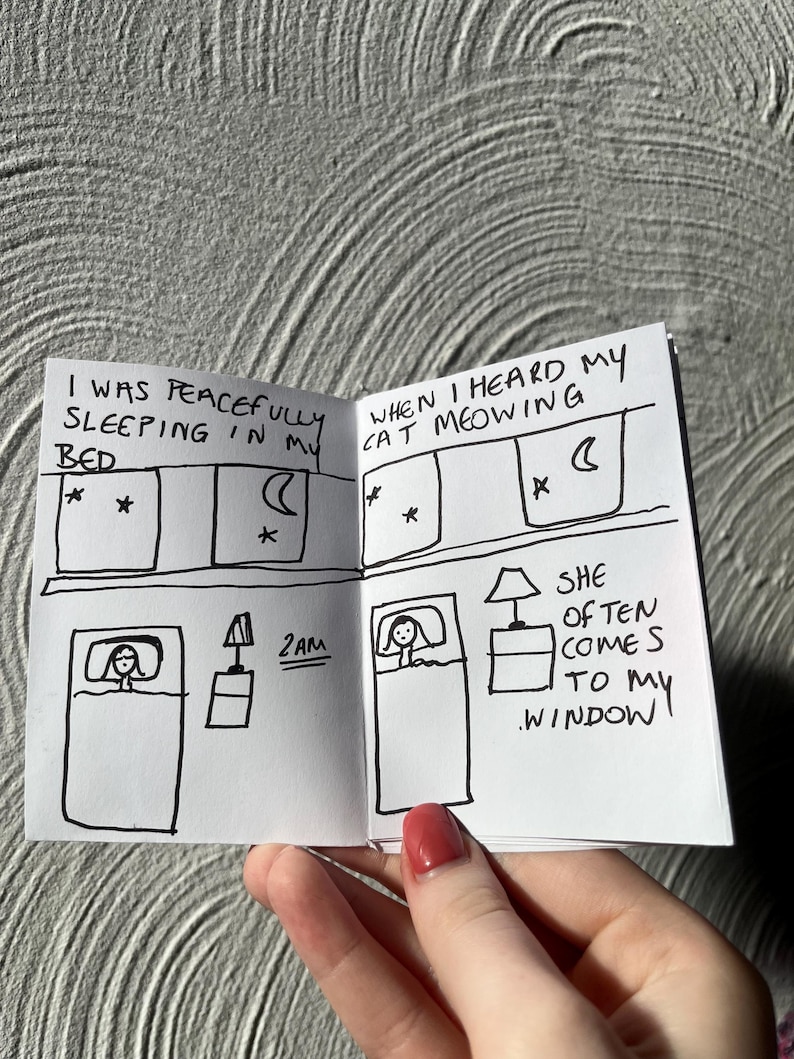 I WAS PEACEFULLY
SLEEPING IN MY
BED
2AM
WHEN I HEARD MY
CAT MEOWING
SHE
OFTEN
COMES
TO MY
WINDOW